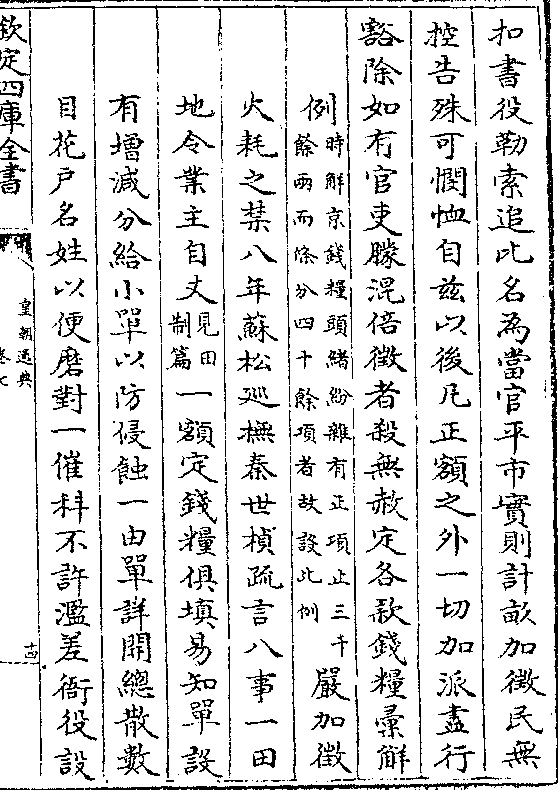 扣書役勒索追此名為當官平市實則計畝加徵民無
控告殊可憫恤自兹以後凡正額之外一切加派盡行
豁除如有官吏朦混倍徵者殺無赦定各款錢糧彚解
例時解京錢糧頭緒紛雜有正項止三千
餘兩而條分四十餘項者故設此例嚴加徵
火耗之禁八年蘇松巡撫秦世楨疏言八事一田
地令業主自丈見田
制篇一額定錢糧俱填易知單設
有增減分給小單以防侵蝕一由單詳開總散數
目花戶名姓以便磨對一催科不許濫差衙役設
欽定四庫全書
皇朝通典
卷七
十四